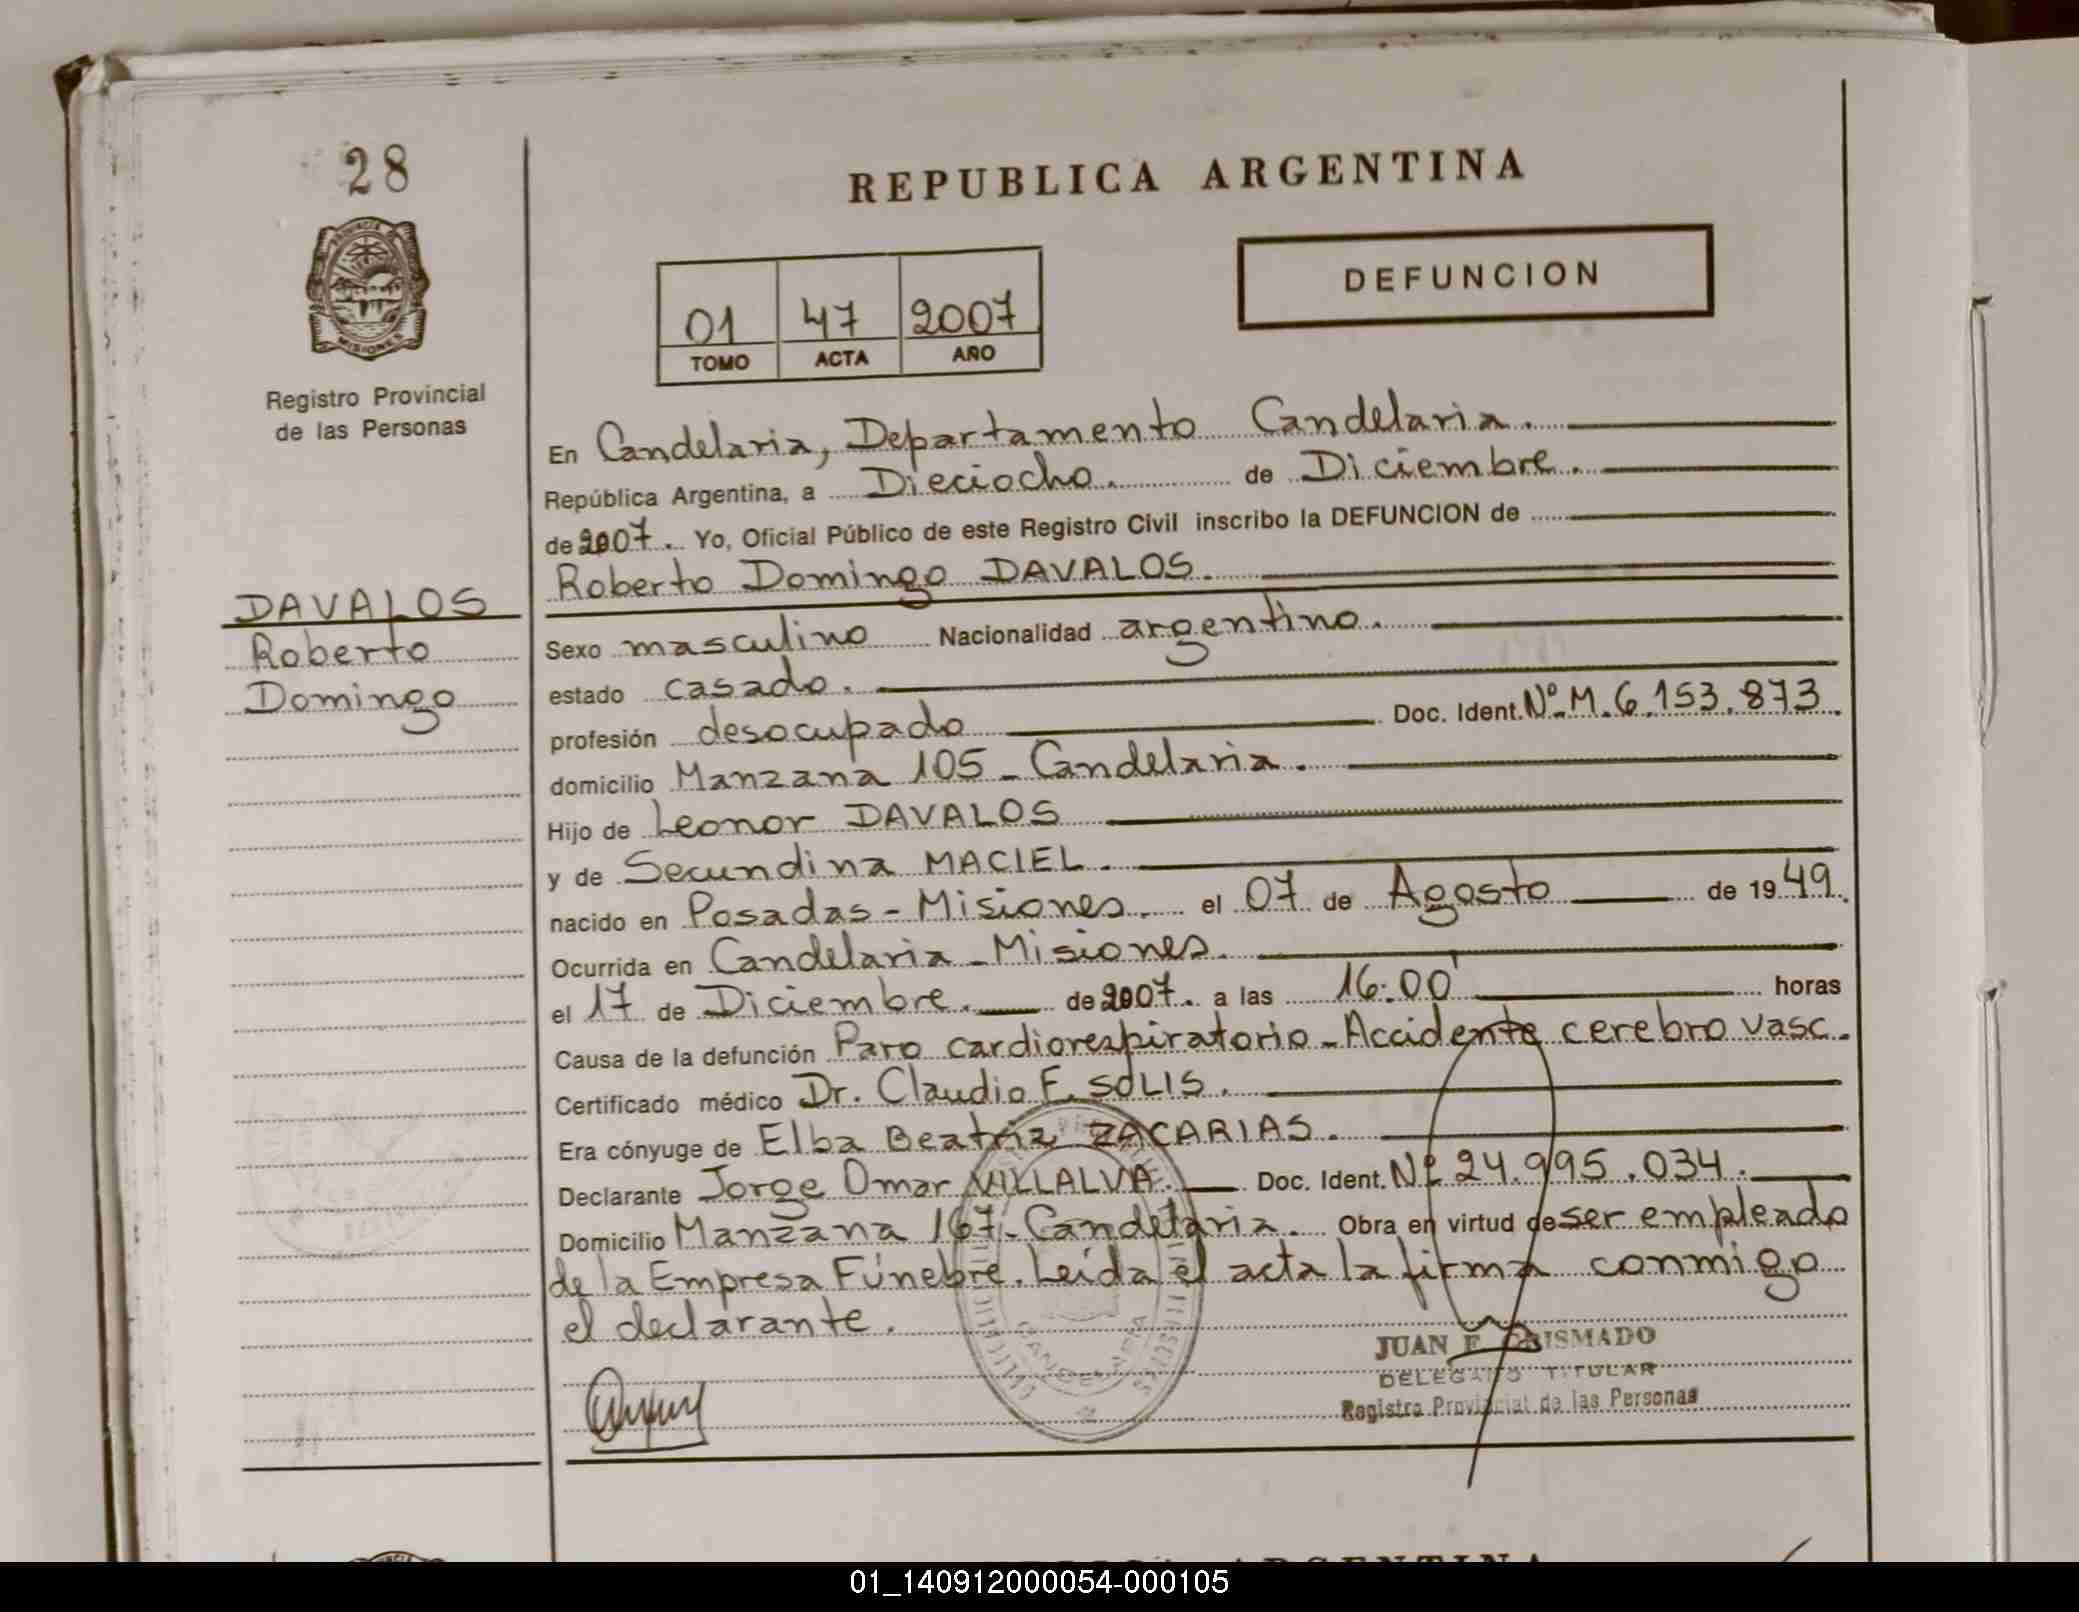 28
REPUBLICA ARGENTINA
PROVINCIA DE
MISIONES
DEFUNCION
01 47 2007
TOMO ACTA AÑO
Registro Provincial
de las Personas
En Candelaria, Departamento Candelaria.
República Argentina, a Dieciocho. de Diciembre.
de 2007. Yo, Oficial Público de este Registro Civil inscribo la DEFUNCION de
Roberto Domingo DAVALOS.
DAVALOS
Roberto
Domingo
Sexo masculino Nacionalidad argentino.
estado casado.
profesión desocupado Doc. Ident. Nº M. 6.153.873.
domicilio Manzana 105 - Candelaria.
Hijo de Leonor DAVALOS
y de Secundina MACIEL.
nacido en Posadas - Misiones. el 07 de Agosto de 1949.
Ocurrida en Candelaria - Misiones.
el 17 de Diciembre. de 2007. a las 16:00' horas
Causa de la defunción Paro cardiorespiratorio - Accidente cerebro vasc.
Certificado médico Dr. Claudio F. SOLIS.
Era cónyuge de Elba Beatriz ZACARIAS.
Declarante Jorge Omar VILLALVA. Doc. Ident. Nº 24.995.034.
Domicilio Manzana 167 - Candelaria. Obra en virtud de ser empleado
de la Empresa Fúnebre. Leída el acta la firma conmigo
el declarante.
CANDELARIA
JUAN E. CRISMADO
DELEGADO TITULAR
Registro Provincial de las Personas
ARGENTINA
01_140912000054-000105